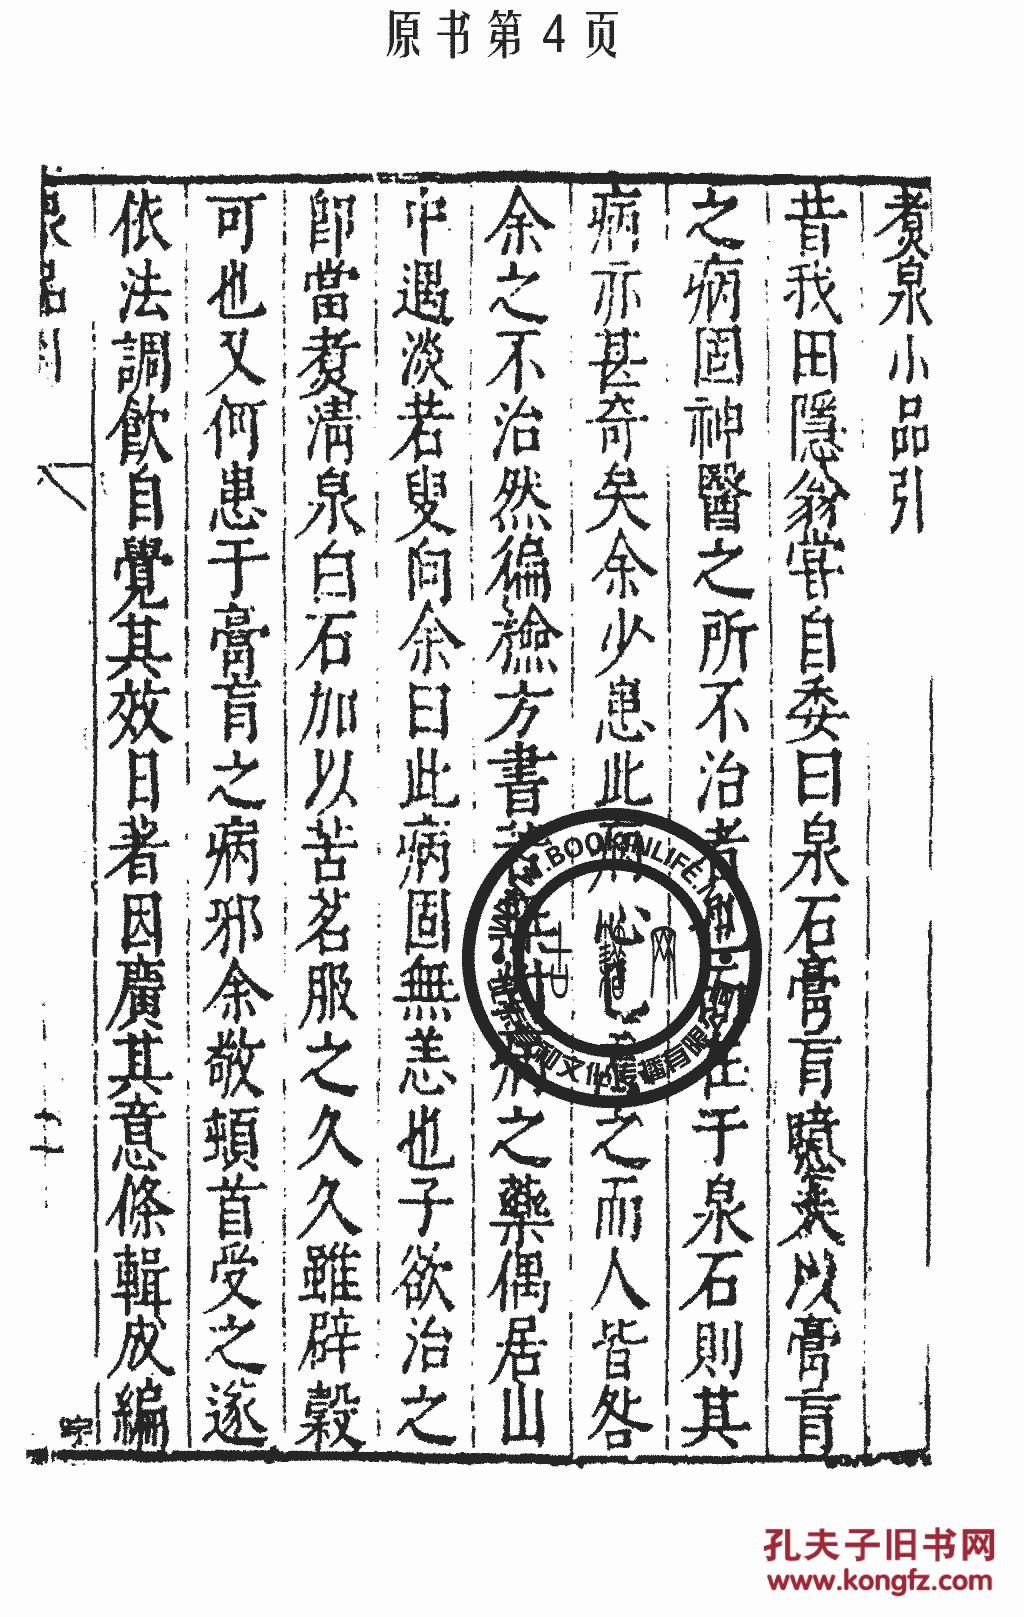 原书第4页
煮泉小品引
昔我田隱翁嘗自委曰泉石膏肓噫夫以膏肓
之病固神醫之所不治者也而在于泉石則其
病亦甚奇矣余少患此病心已忘之而人皆咎
余之不治然徧檢方書苦無對病之藥偶居山
中遇淡若叟向余曰此病固無恙也子欲治之
卽當煮清泉白石加以苦茗服之久久雖辟穀
可也又何患于膏肓之病邪余敬頓首受之遂
依法調飲自覺其效日著因廣其意條輯成編
泉品引
一
十一
WWW.BOOKINLIFE.
文化传播有限
孔夫子旧书网
www.kongfz.com